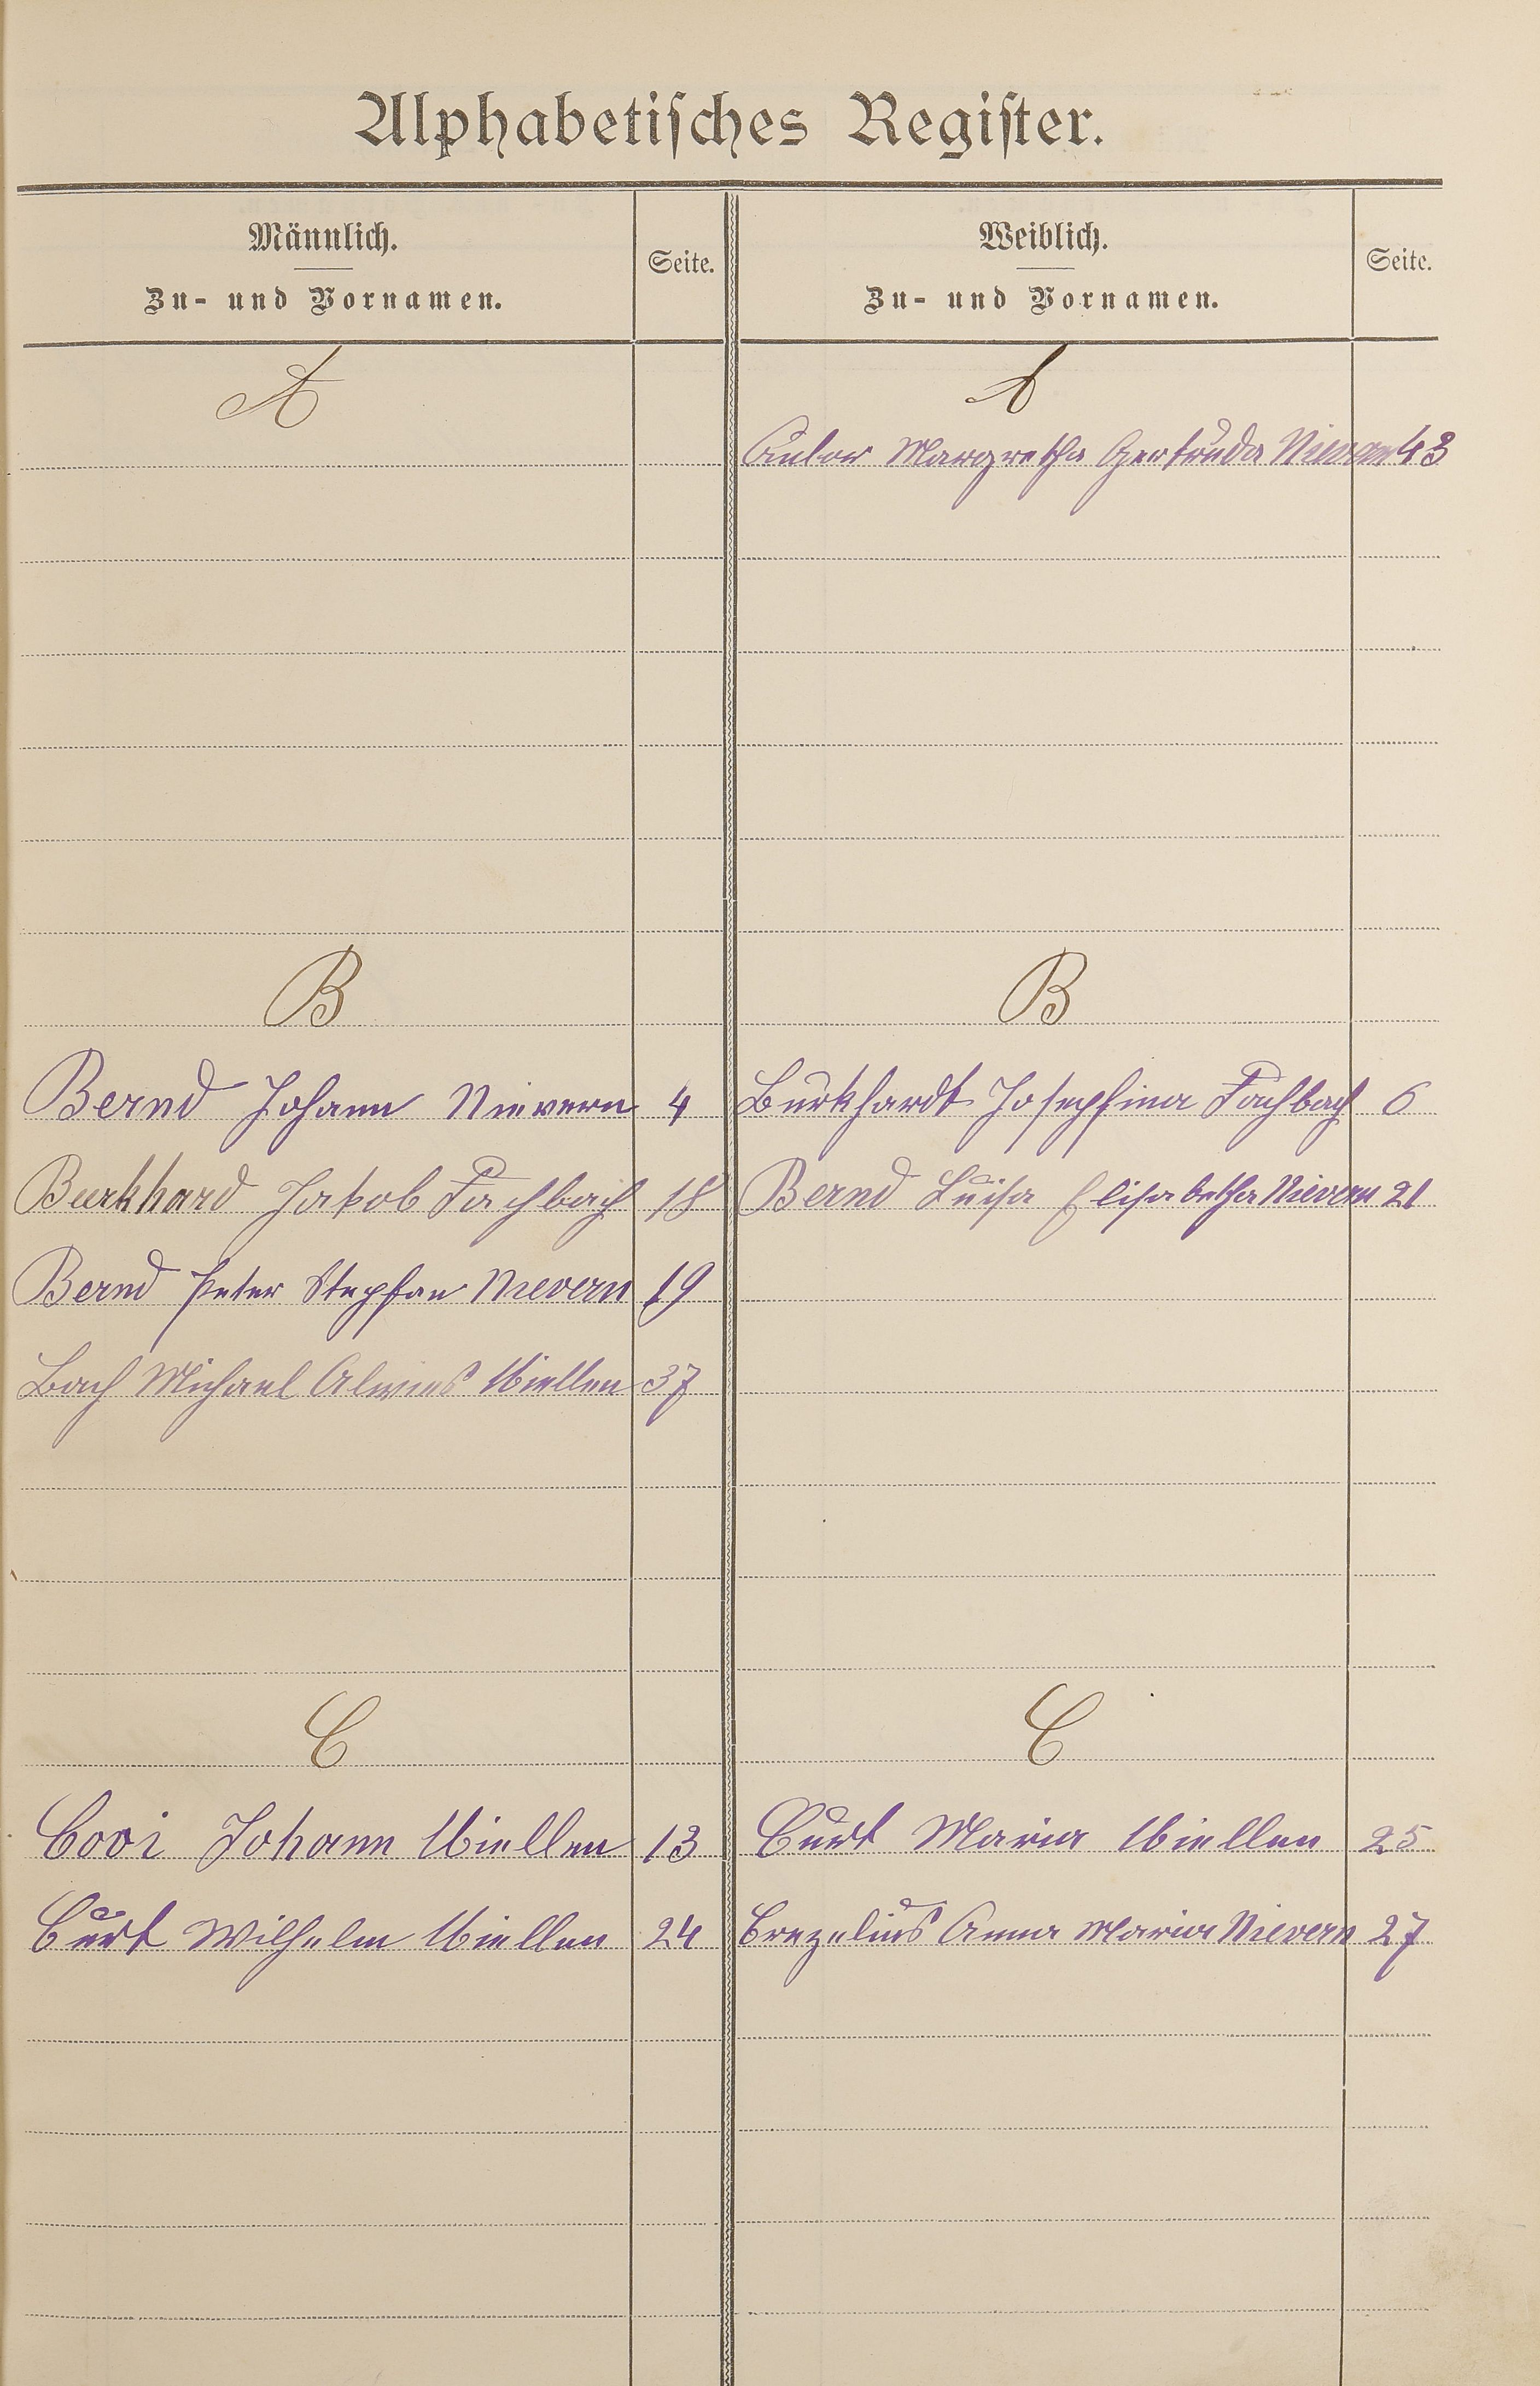 Alphabetisches Register.
Männlich.
Zu- und Vornamen.
Seite.
Weiblich.
Zu- und Vornamen.
Seite.
A
A
Margretha Gertruda Nievern 43
B
B
Bernd Johann Nievern 4
Burkhardt Josephina Fachbach 6
Burkhard Jakob Fachbach 18
Bernd Luisa Elisabetha Nievern 21
Bernd Peter Stephan Nievern 19
Bach Michael Miellen 37
C
C
Johann Miellen 13
Curt Maria Miellen 25
Curt Wilhelm Miellen 24
Crezelius Anna Maria Nievern 27